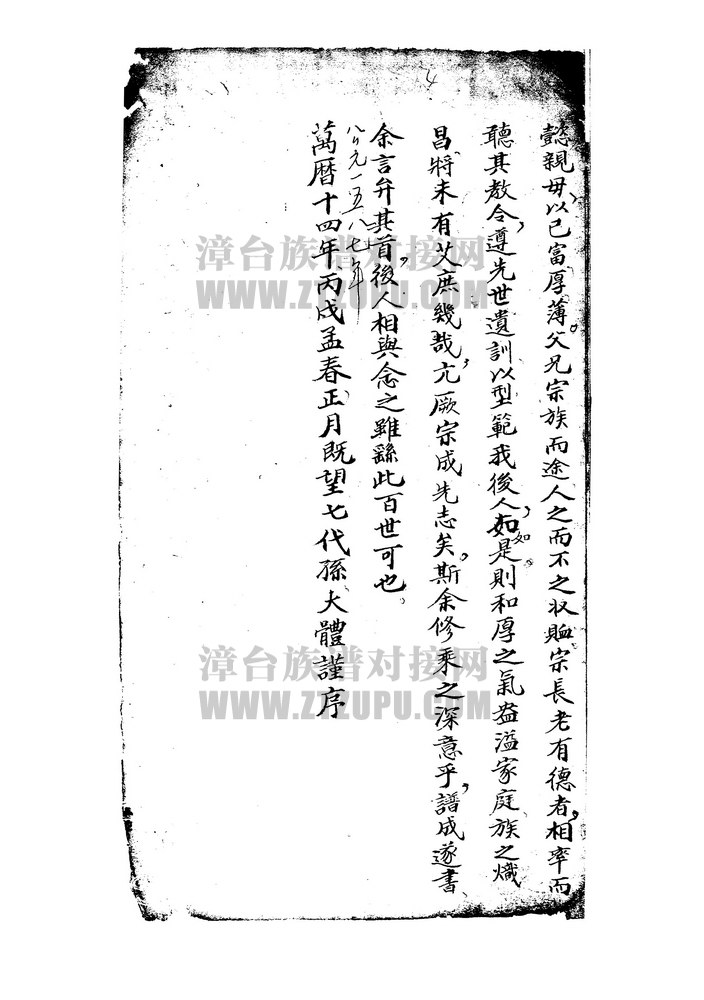 4
懿親毋以己富厚薄。父兄宗族而途人之而不之収賉宗長老有德者,相率而
聽其教令,遵先世遺訓以型範我後人,如如是。則和厚之氣盎溢家庭族之熾
昌將未有艾庶幾哉,亢厥宗成先志矣。斯余修乘之深意乎,譜成遂書
余言弁其首,後人相與念之雖繇此百世可也,
公元一五八七年
萬曆十四年丙戌孟春正月既望七代孫大體謹序
漳台族谱对接网
WWW.ZTZUPU.COM
漳台族谱对接网
WWW.ZTZUPU.COM